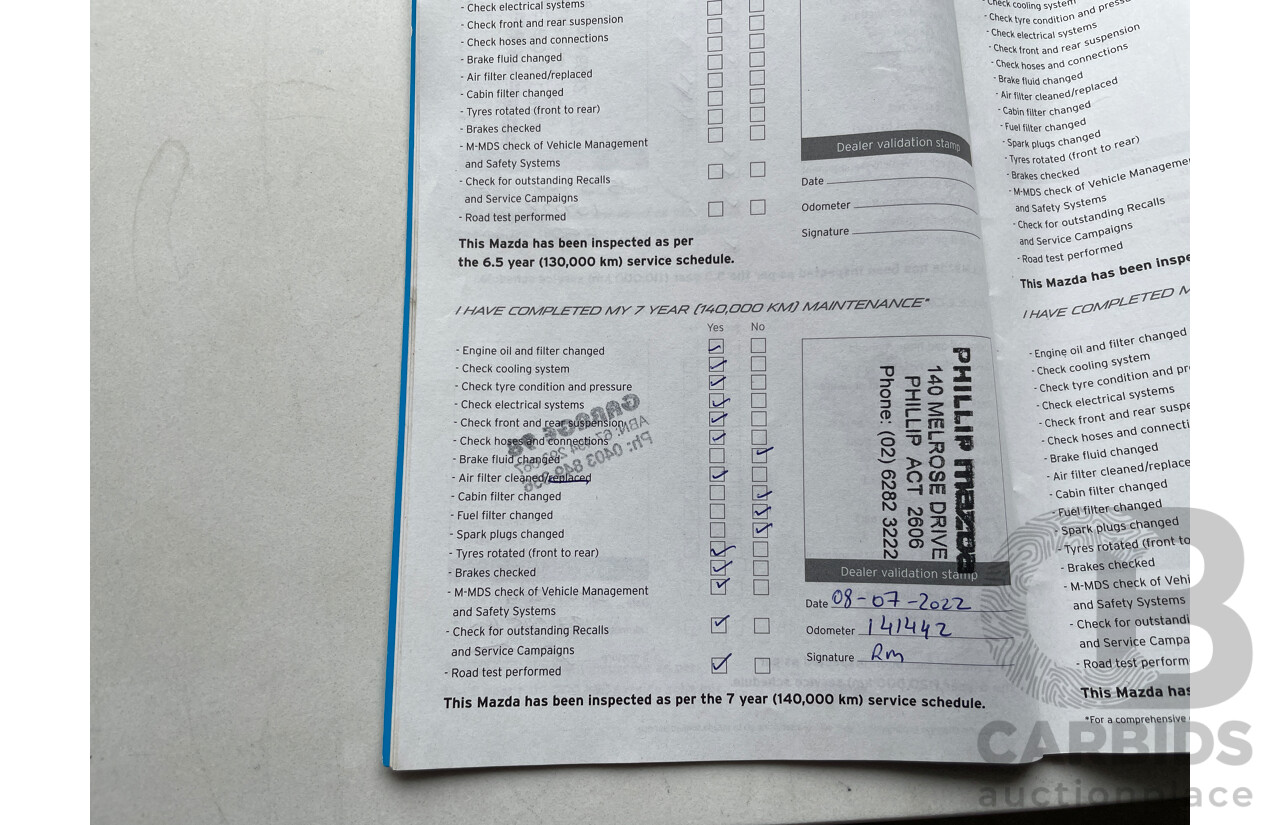 - Check electrical systems
- Check front and rear suspension
- Check hoses and connections
- Brake fluid changed
- Air filter cleaned/replaced
- Cabin filter changed
- Tyres rotated (front to rear)
- Brakes checked
- M-MDS check of Vehicle Management
and Safety Systems
- Check for outstanding Recalls
and Service Campaigns
- Road test performed
Dealer validation stamp
Date
Odometer
Signature
This Mazda has been inspected as per
the 6.5 year (130,000 km) service schedule.
I HAVE COMPLETED MY 7 YEAR (140,000 KM) MAINTENANCE*
Yes No
- Engine oil and filter changed
- Check cooling system
- Check tyre condition and pressure
- Check electrical systems
- Check front and rear suspension
- Check hoses and connections
- Brake fluid changed
- Air filter cleaned/replaced
- Cabin filter changed
- Fuel filter changed
- Spark plugs changed
- Tyres rotated (front to rear)
- Brakes checked
- M-MDS check of Vehicle Management
and Safety Systems
- Check for outstanding Recalls
and Service Campaigns
- Road test performed
PHILLIP mazda
140 MELROSE DRIVE
PHILLIP ACT 2606
Phone: (02) 6282 3222
Dealer validation stamp
Date 08-07-2022
Odometer 141442
Signature Rm
This Mazda has been inspected as per the 7 year (140,000 km) service schedule.
- Check cooling system
- Check tyre condition and press
- Check electrical systems
- Check front and rear suspension
- Check hoses and connections
- Brake fluid changed
- Air filter cleaned/replaced
- Cabin filter changed
- Fuel filter changed
- Spark plugs changed
- Tyres rotated (front to rear)
- Brakes checked
- M-MDS check of Vehicle Manageme
and Safety Systems
- Check for outstanding Recalls
and Service Campaigns
- Road test performed
This Mazda has been inspe
I HAVE COMPLETED M
- Engine oil and filter changed
- Check cooling system
- Check tyre condition and pr
- Check electrical systems
- Check front and rear suspe
- Check hoses and connecti
- Brake fluid changed
- Air filter cleaned/replace
- Cabin filter changed
- Fuel filter changed
- Spark plugs changed
- Tyres rotated (front to
- Brakes checked
- M-MDS check of Vehi
and Safety Systems
- Check for outstandi
and Service Campa
- Road test perform
This Mazda has
*For a comprehensive
CARBIDS
auctionplace